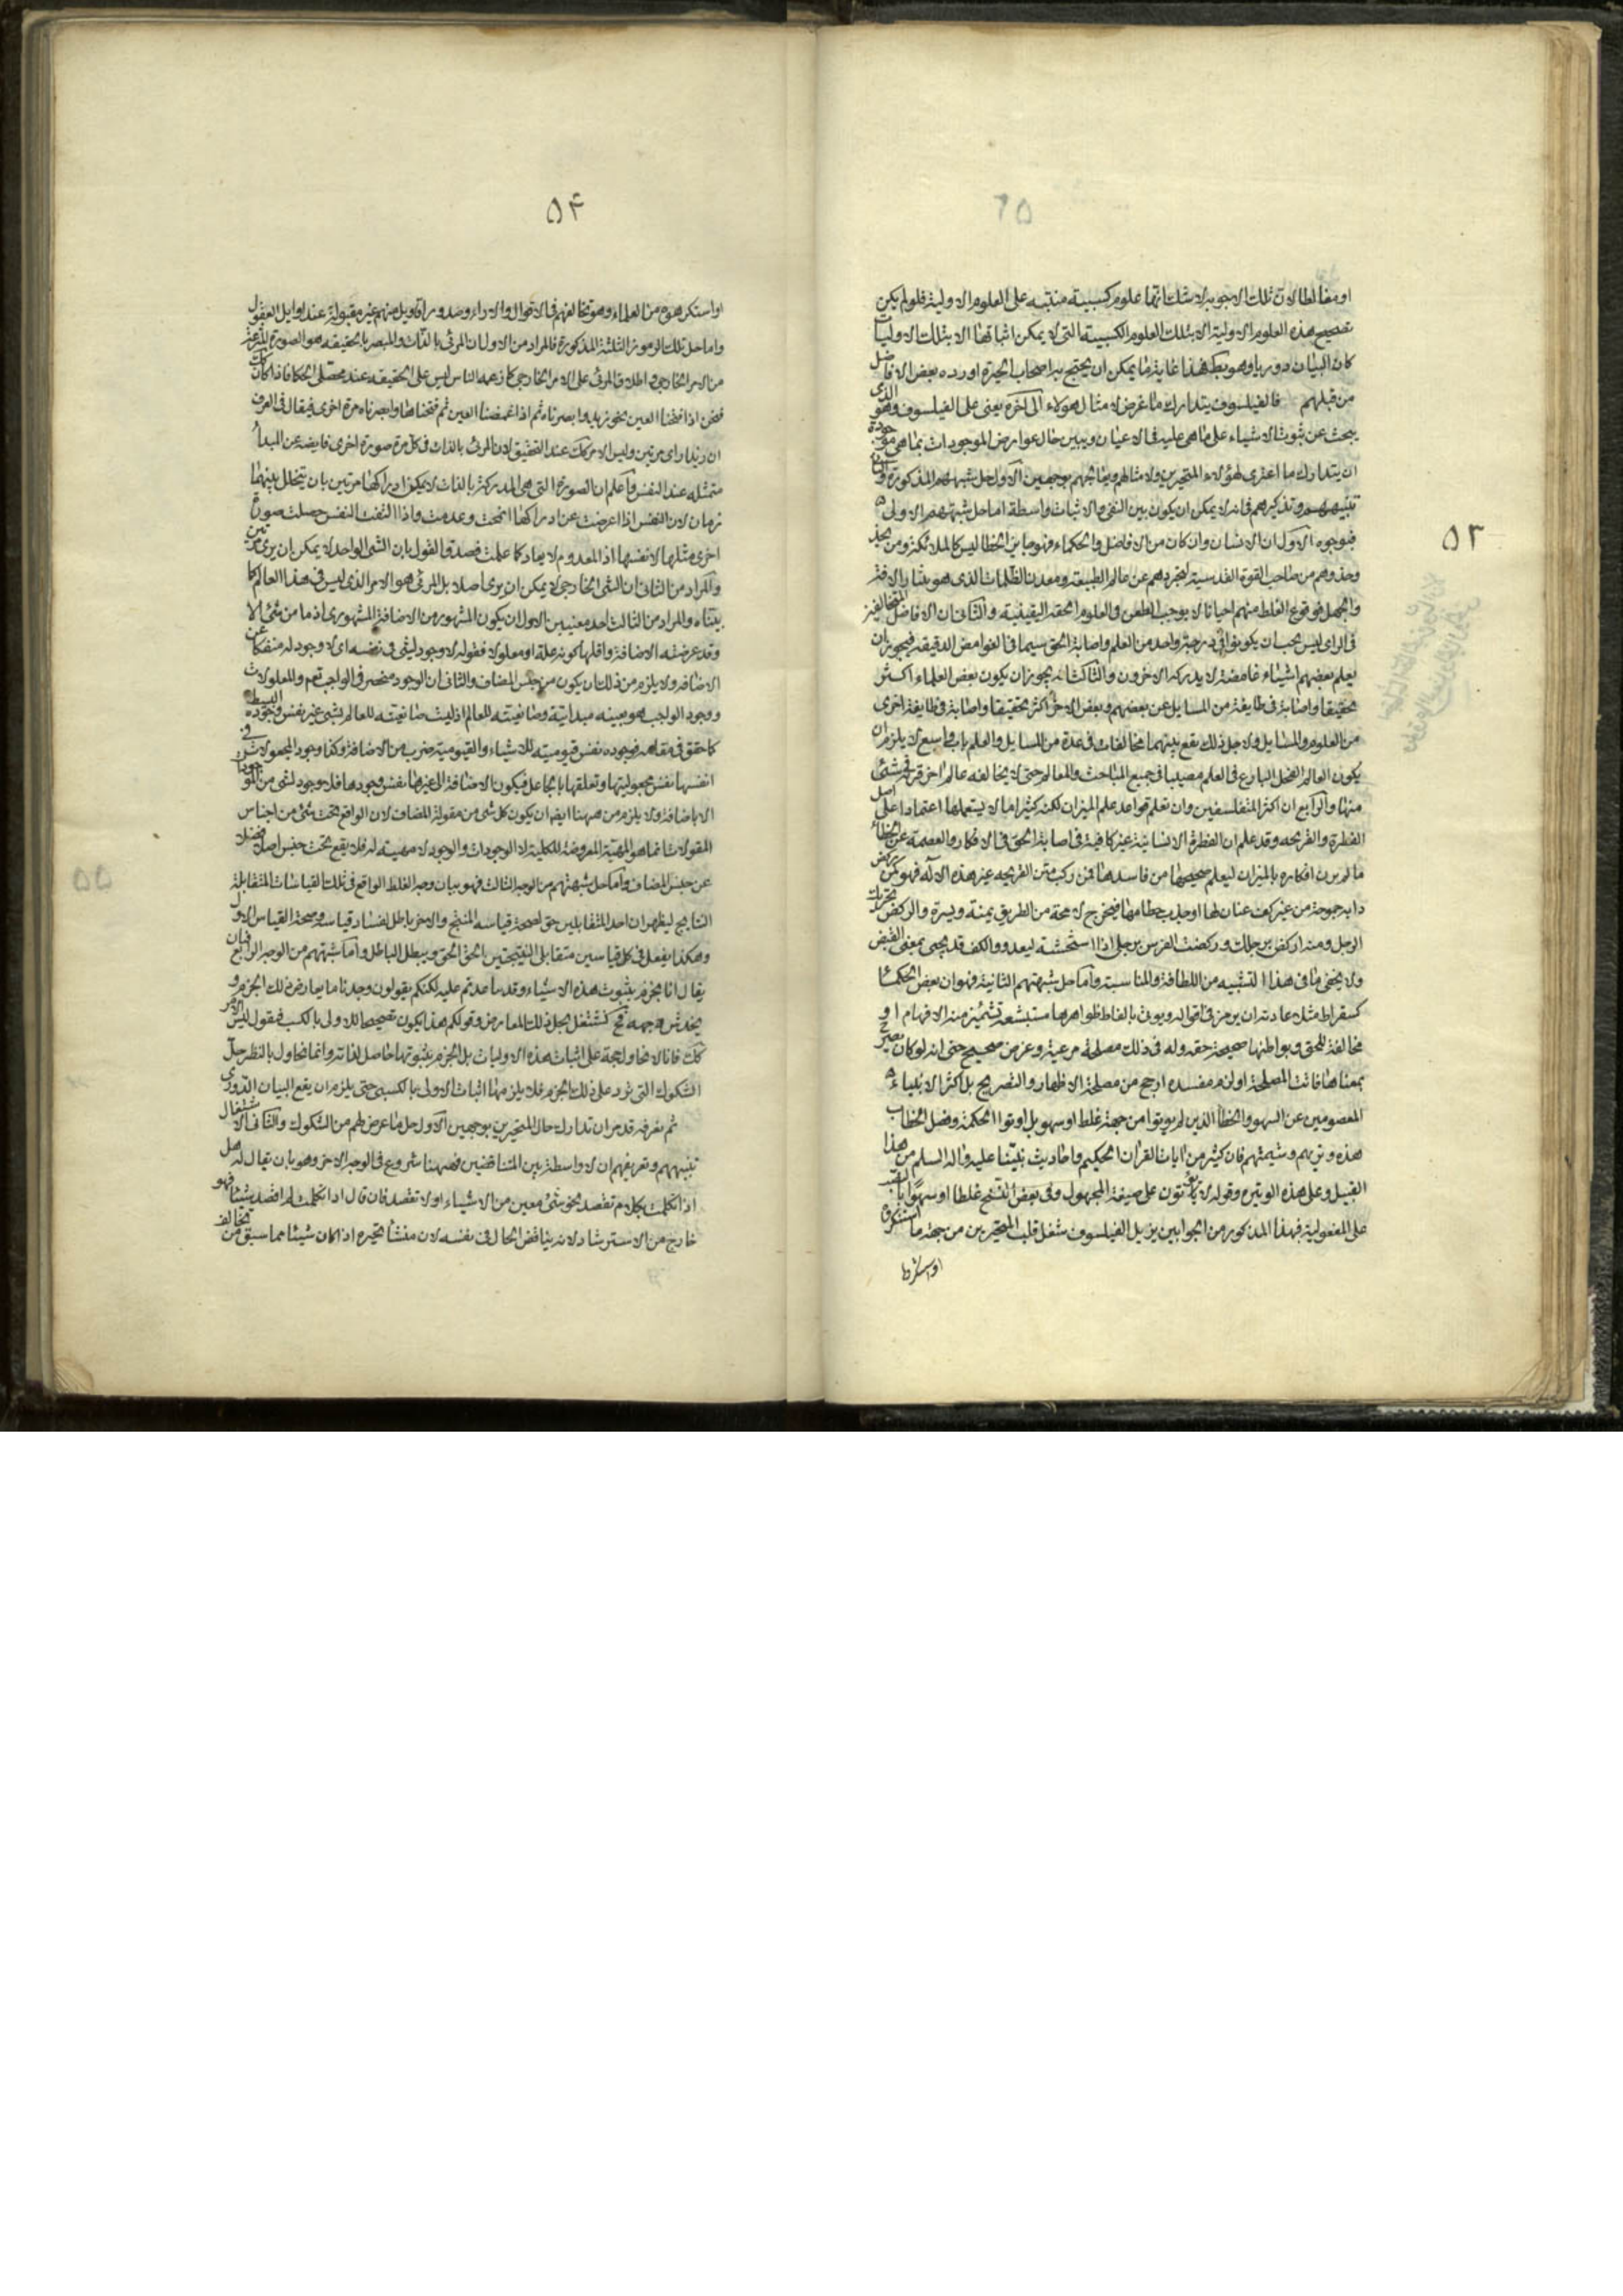 او مغالطا لان تلك الاجوبه لا شك انها علوم كسبية مبتنية على العلوم الاولية فلو لم يكن
تصحيح هذه العلوم الاولية الا بتلك العلوم الكسبية التى لا يمكن اثباتها الا بتلك الاوليات
كان البيان دوريا وهو بط هذا غاية ما يمكن ان يحتج به اصحاب الحيرة اورده بعض الافاضل
من قبلهم فالفيلسوف يتدارك ما عرض لامثال هولاء الى آخره يعنى على الفيلسوف وهو الذى
يبحث عن ثبوت الاشياء على ما هى عليه فى الاعيان ويبين حال عوارض الموجودات بما هى موجودة
ان يتدارك ما اعترى لهؤلاء المتحيرين ولامثالهم ويعالجهم بوجهين الاول حل شبههم المذكورة والثانى
تنبيههم وتذكيرهم فانه لا يمكن ان يكون بين النفى والاثبات واسطة اما حل شبهتهم الاولى
فبوجوه الاول ان الانسان وان كان من الافاضل والحكماء فهو جايز الخطا ليس كالملائكة ومن يحذ
وحذوهم من صاحب القوة القدسية لتجردهم عن عالم الطبيعة ومعدن الظلمات الذى هو مثار الآفة
والجهل فوقوع الغلط منهم احيانا لا يوجب الطعن فى العلوم الحقة اليقينية والثانى ان الافاضل المتخالفين
فى الراى ليس يجب ان يكونوا فى درجة واحدة من العلم واصابة الحق سيما فى الغوامض الدقيقة فيجوز ان
يعلم بعضهم اشياء غامضة لا يدركه الاخرون والثالث انه يجوز ان يكون بعض العلماء اكثر
تحقيقا واصابة فى طايفة من المسايل عن بعضهم وبعض الاخر اكثر تحقيقا واصابة فى طايفة اخرى
من العلوم والمسايل ولاجل ذلك يقع بينهما مخالفات فى عدة من المسايل والعلم باب واسع لا يلزم ان
يكون العالم الفحل البارع فى العلم مصيبا فى جميع المباحث والمعالم حتى لا يخالفه عالم اخر قرنه فى شئ
منها والرابع ان اكثر المتفلسفين وان تعلم قواعد علم الميزان لكنه كثيرا ما لا يستعملها اعتمادا على اصل
الفطرة والقريحه وقد علم ان الفطرة الانسانية غير كافية فى اصابة الحق فى الافكار والعصمة عن الخطاء
ما لم يزن افكاره بالميزان ليعلم صحيحها من فاسدها فمن ركب متن القريحه عير هذه الآلة فهو كمن ركض
دابة جوحة من غير كف عنان لها او جلب خطامها فيخرج لا محة من الطريق يمنة ويسرة والركض تحريك
الرجل ومنه اركض برجلك وركضت الفرس برجلى اذا استحثته ليعدو والكف قد يجئ بمعنى القبض
ولا يخفى ما فى هذا التشبيه من اللطافة والمناسبة واما حل شبهتهم الثانية فهو ان بعض الحكماء
كسقراط مثلا عادته ان يرمز فى اقواله ويوتى بالفاظ ظواهرها مستبشعة تشمئز منه الافهام او
مخالفة للحق وبواطنها صحيحة حقه وله فى ذلك مصلحة مرعية وغرض صحيح حتى انه لو كان تصريح
بمعناها فاتت المصلحة او لزم مفسدة ارجح من مصلحة الاظهار والتصريح بل اكثر الانبياء
المعصومين عن السهو والخطأ الذين لم يوتوا من جهة غلط او سهو بل اوتوا الحكمة وفصل الخطاب
هذه وتيرتهم وشيمتهم فان كثيرا من آيات القرآن الحكيم واحاديث نبينا عليه وآله السلم من هذا
القبيل وعلى هذه الوتيرة وقوله لا يؤتون على صيغة المجهول وفى بعض النسخ غلطا او سهوا بالنصب
على المفعولية فهذا المذكور من الجوابين يزيل الفيلسوف شغل قلب المتحيرين من جهة ما استنكر
او استنكر
٥٣
٥٤
او استنكر هو من العلماء وهو تخالفهم فى الاقوال والآراء وصدور اقاويل منهم غير مقبولة عند اوايل العقول
واما حل تلك الرموز الثلثة المذكورة فالمراد من الاول ان المرئى بالذات والمبصر بالحقيقه هو الصورة المنتزعة
من الامر الخارجى واطلاق المرئى على الامر الخارجى كما زعمه الناس ليس على الحقيقه عند محصلى الحكما فاذا كان كك
فنحن اذا فتحنا العين نحو زيد وابصرناه ثم اذا غمضنا العين ثم فتحناها وابصرناه مرة اخرى فيقال فى العرف
ان زيدا راى مرتين وليس الامر كك عند التحقيق لان المرئى بالذات فى كل مرة صورة اخرى فايضة عن المبدأ
متمثلة عند النفس فاعلم ان الصورة التى هى المدركة بالذات لا يمكن ادراكها مرتين بان يتخلل بينهما
زمان لان النفس اذا اعرضت عن ادراكها انمحت وعدمت واذا التفت النفس حصلت صورة
اخرى مثلها لا نفسها اذ المعدوم لا يعاد كما علمت فصدق القول بان الشئ الواحد لا يمكن ان يرى مرتين
والمراد من الثانى ان الشئ الخارجى لا يمكن ان يرى اصلا بل المرئى هو الامر الذى ليس فى هذا العالم كما
بيناه والمراد من الثالث احد معنيين الاول ان يكون المشهور من الاضافة المشهورى اذ ما من شئ الا
وقد عرضته الاضافة واقلها كونه علة او معلولا فقوله لا وجود لشئ فى نفسه اى لا وجود له منفكا عن
الاضافه ولا يلزم من ذلك ان يكون من جنس المضاف والثانى ان الوجود منحصر فى الواجب تعم والمعلولات
ووجود الواجب هو بعينه مبدائيته وصانعيته للعالم اذ ليست صانعيته للعالم بشئ غير نفس وجوده البسيط
كما حقق فى مقامه فوجوده نفس قيوميته للاشياء والقيومية ضرب من الاضافة وكذا وجود المجعولات فى
انفسها نفس مجعوليتها وتعلقها بالجاعل فيكون الاضافة الى غيرها نفس وجودها فلا وجود لشئ من الموجودات
الا باضافة ولا يلزم من ههنا ايضا ان يكون كل شئ من مقولة المضاف لان الواقع تحت شئ من اجناس
المقولات انما هو المهية المعروضة للكلية لا الوجودات والوجود لا مهية له فلا يقع تحت جنس اصلا فضلا
عن جنس المضاف واما حل شبهتهم من الوجه الثالث فهو بيان وجه الغلط الواقع فى تلك القياسات المتقابلة
النتايج ليظهر ان احد المتقابلين حق لصحة قياسه المنتج والاخر باطل لفساد قياسه وصحة القياس الاول
وهكذا يفعل فى كل قياسين متقابلى النتيجتين ليحق الحق ويبطل الباطل واما شبهتهم من الوجه الرابع فبان
يقال انا نجزم بثبوت هذه الاشياء وقد ساعدتم عليه لكنكم تقولون وجدنا ما يعارض ذلك الجزم و
يخدش وجهه فح نشتغل بحل ذلك المعارض وقولكم هذا يكون تصحيحا للاولى بالكسب فنقول ليس الامر
كك فانا لا نحاول حجة على اثبات هذه الاوليات بل الجزم بثبوتها حاصل لذاته وانما نحاول بالنظر حل
الشكوك التى تورد على ذلك الجزم فلا يلزم منها اثبات الاولى بالكسبى حتى يلزم ان يقع البيان الدورى
ثم تعرفه قد مر ان تدارك حال المتحيرين بوجهين الاول حل ما عرض لهم من الشكوك والثانى الاشتغال
تنبيههم وتعريفهم ان لا واسطة بين المتناقضين فههنا شروع فى الوجه الاخر وهو بان يقال له هل
اذا تكلمت بكلام تقصد نحو شئ معين من الاشياء او لا تقصد فان قال اذا تكلمت لم اقصد شيئا فهو
خارج من الاسترشاد لانه يناقض الحال فى نفسه لان منشأ تحيره اذا كان شيئا مما سبق من تخالف
٥٥